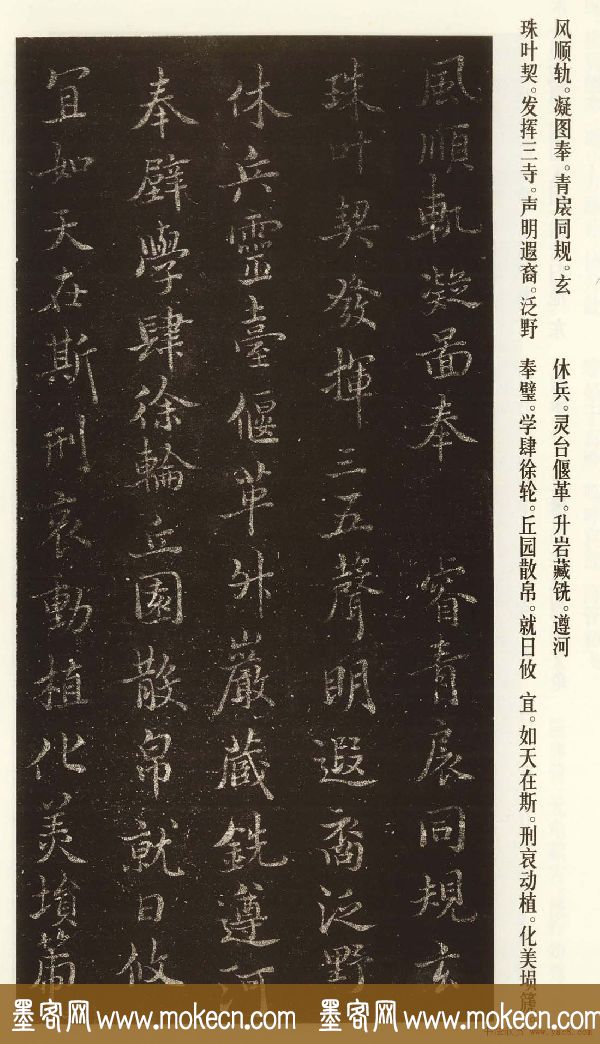 风顺轨。凝图奉。青扆同规。玄
珠叶契。发挥三寺。声明遐裔。泛野
休兵。灵台偃革。升岩藏铣。遵河
奉璧。学肆徐轮。丘园散帛。就日攸
宜。如天在斯。刑哀动植。化美埙篪
風順軌凝圖奉 睿青扆同規玄
珠叶契發揮三五聲明遐裔泛野
休兵靈臺偃革升巖藏銑遵河
奉璧學肆徐輪丘園散帛就日攸
宜如天在斯刑哀動植化美塤箎
墨客网 www.mokecn.com 墨客网 www.mokecn.com